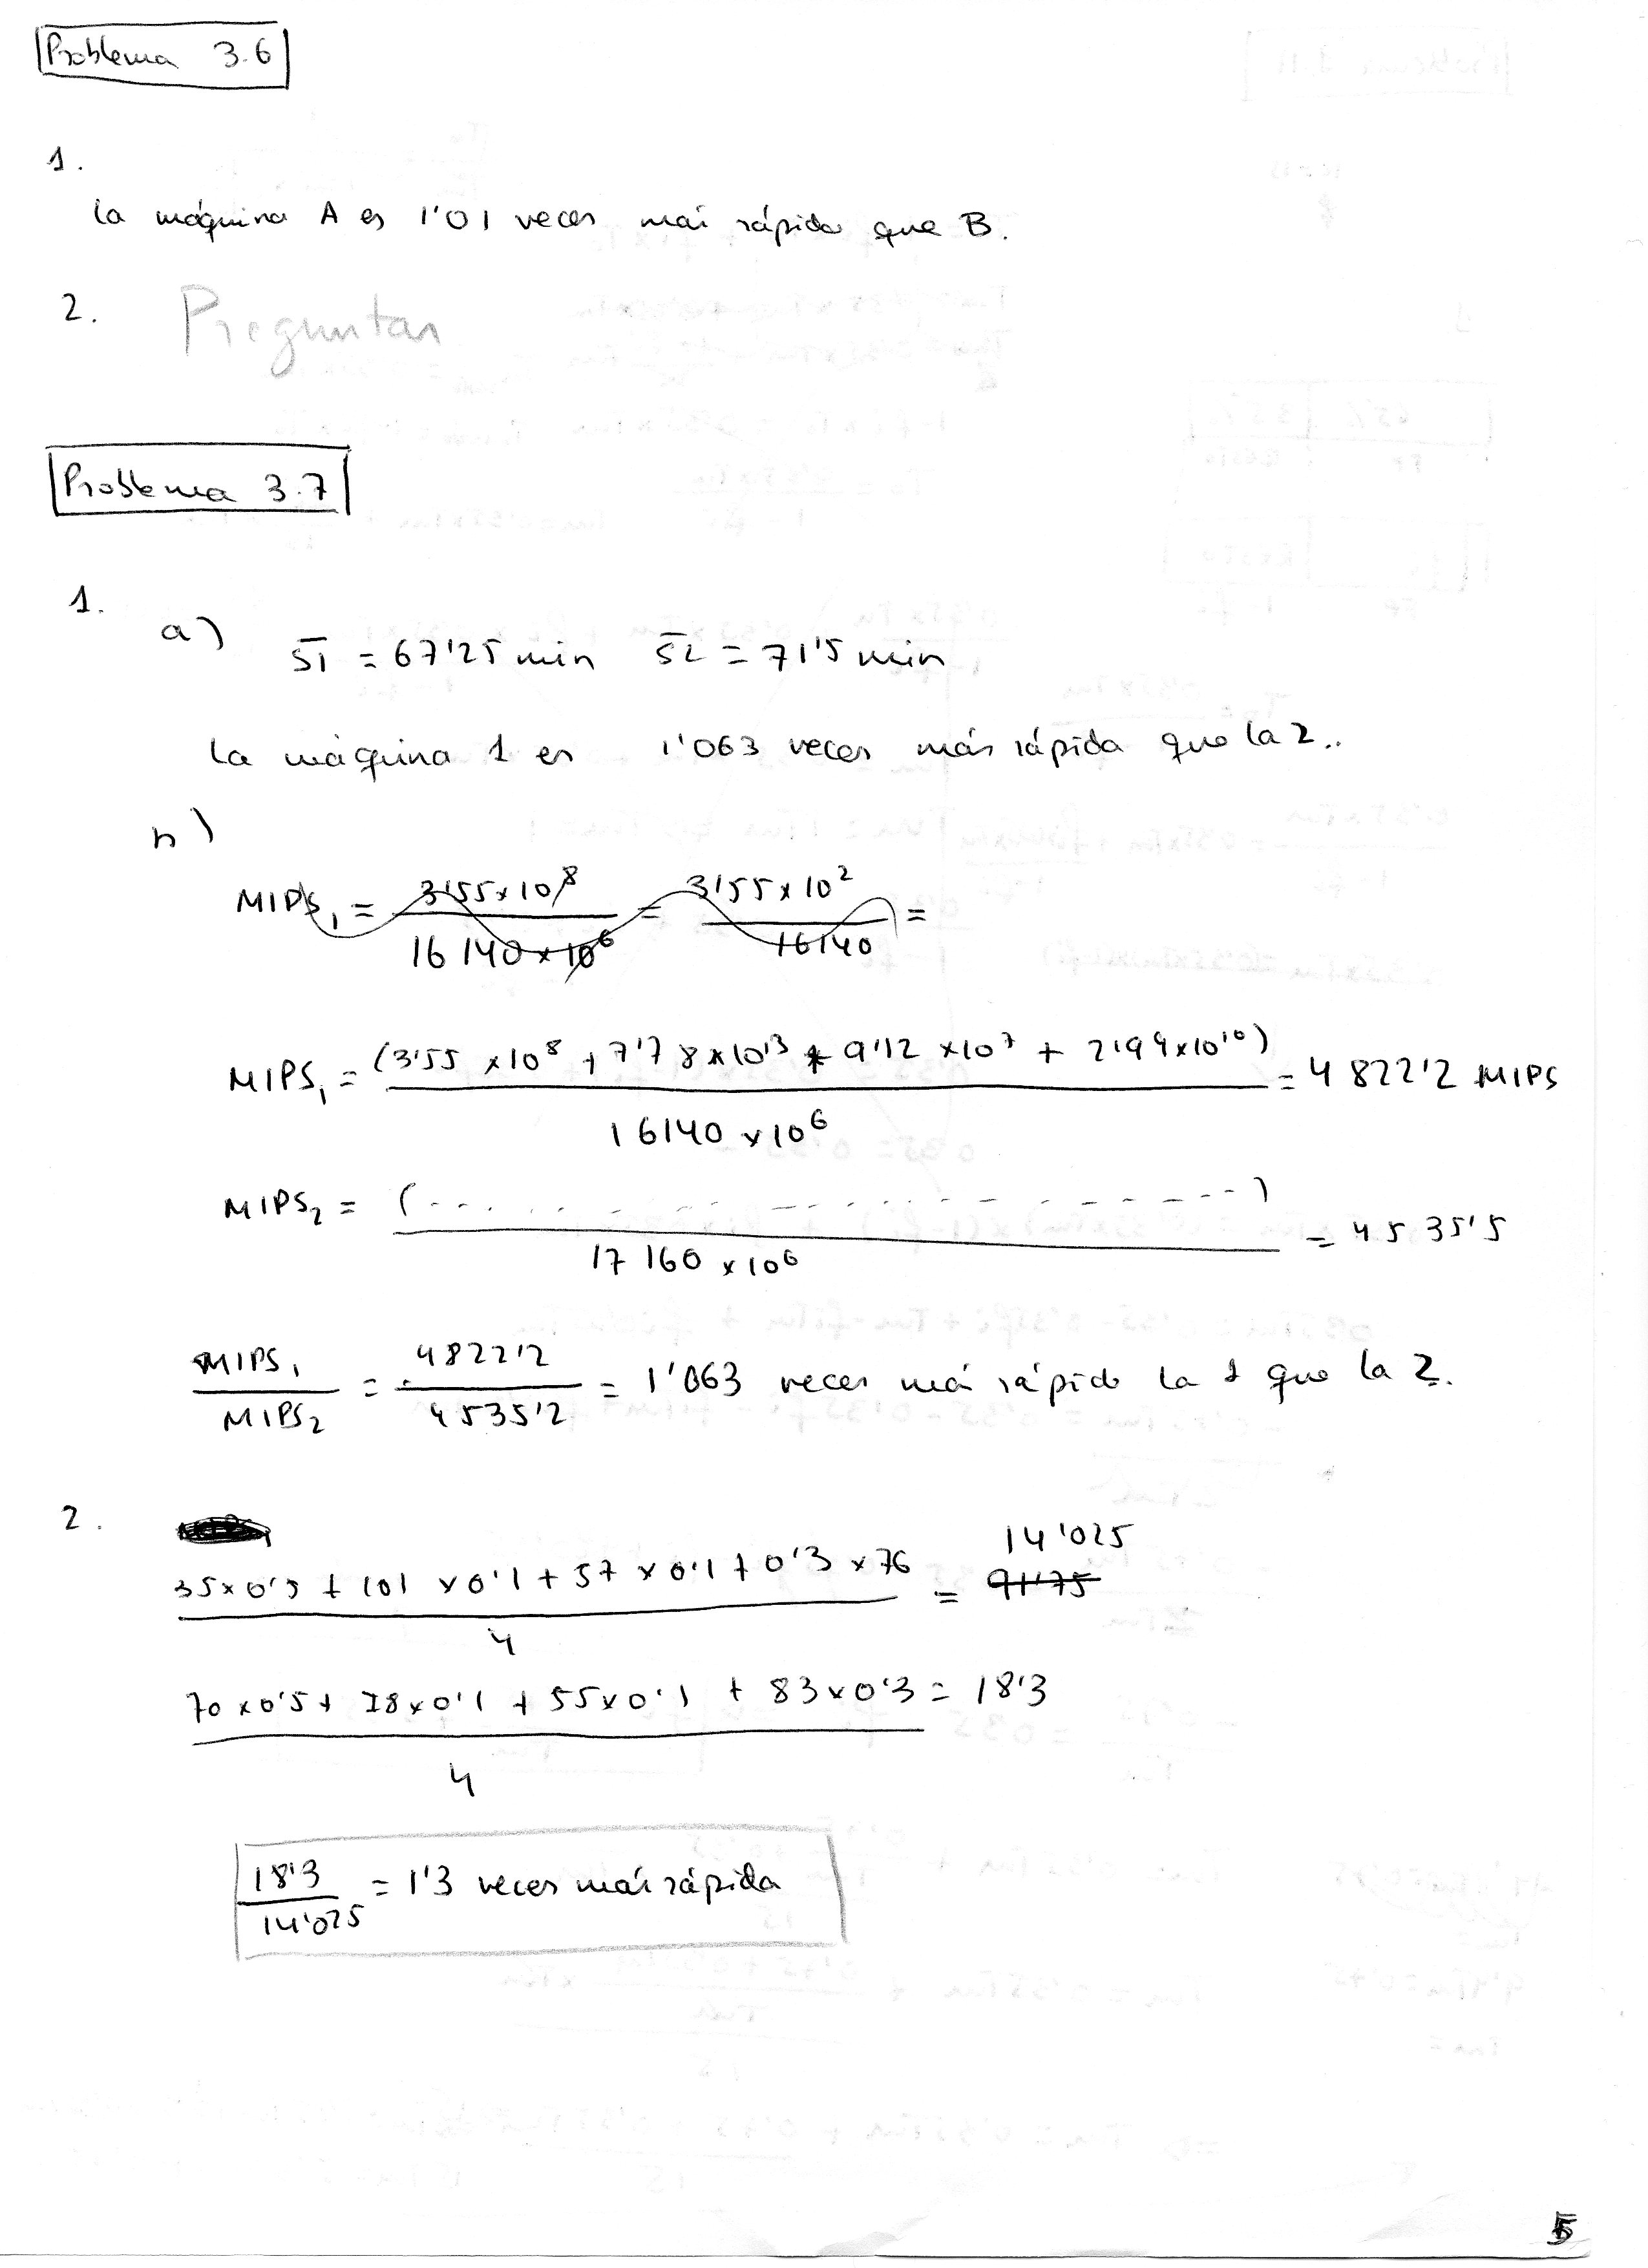 Problema 3.6
1.
La máquina A es 1'01 veces más rápida que B.
2. Preguntar
Problema 3.7
1.
a) S̄1 = 67'25 min S̄2 = 71'5 min
La máquina 1 es 1'063 veces más rápida que la 2..
b)
MIPS₁ = 3'55x10⁸ / 16140x10⁶ = 3'55x10² / 16140 =
MIPS₁ = (3'55 x10⁸ + 7'78x10¹³ + 9'12 x10⁷ + 2'94x10¹⁰) / 16140 x10⁶ = 4822'2 MIPS
MIPS₂ = (- - - - - - - - - - - - - - -) / 17160 x10⁶ = 4535'5
MIPS₁ / MIPS₂ = 4822'2 / 4535'2 = 1'063 veces más rápido la 1 que la 2.
2.
35x0'5 + 101 x0'1 + 57 x0'1 + 0'3 x76 / 4 = 91'75 14'025
70x0'5 + 78x0'1 + 55x0'1 + 83x0'3 / 4 = 18'3
18'3 / 14'025 = 1'3 veces más rápida
5